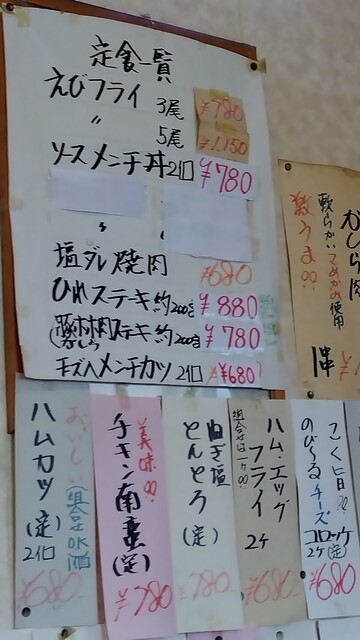 定食一覧
えびフライ 3尾 ¥780
〃 5尾 ¥1.150
ソースメンチ丼 2ヶ ¥780
塩ダレ焼肉 ¥680
ひれステーキ 約200g ¥880
豚肉ステーキ 約200g ¥780
チーズ入メンチカツ 2ヶ ¥680
かしら肉
軟らかい
使用
激うま!!
1本
ハムカツ(定)
2ヶ
おいしい
組合せOK
¥680
チキン南蛮(定)
美味!!
¥780
ねぎ塩
とんとろ(定)
¥780
ハム・エッグ
フライ
2ケ
¥680
こく旨!!
のび〜るチーズ
コロッケ
2ケ(定)
¥680